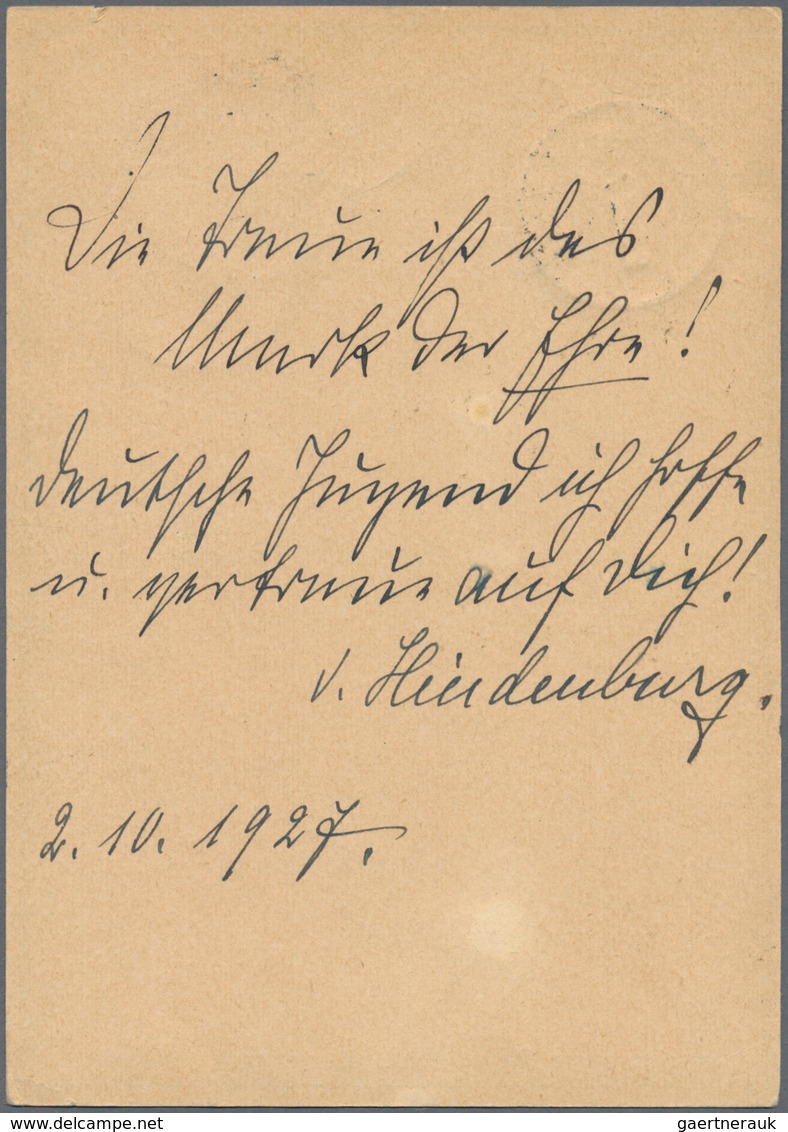 Die Treue ist das
Mark der Ehre!
Deutsche Jugend ich hoffe
u. vertraue auf Dich!
v. Hindenburg.
2. 10. 1927.
gaertnerauk